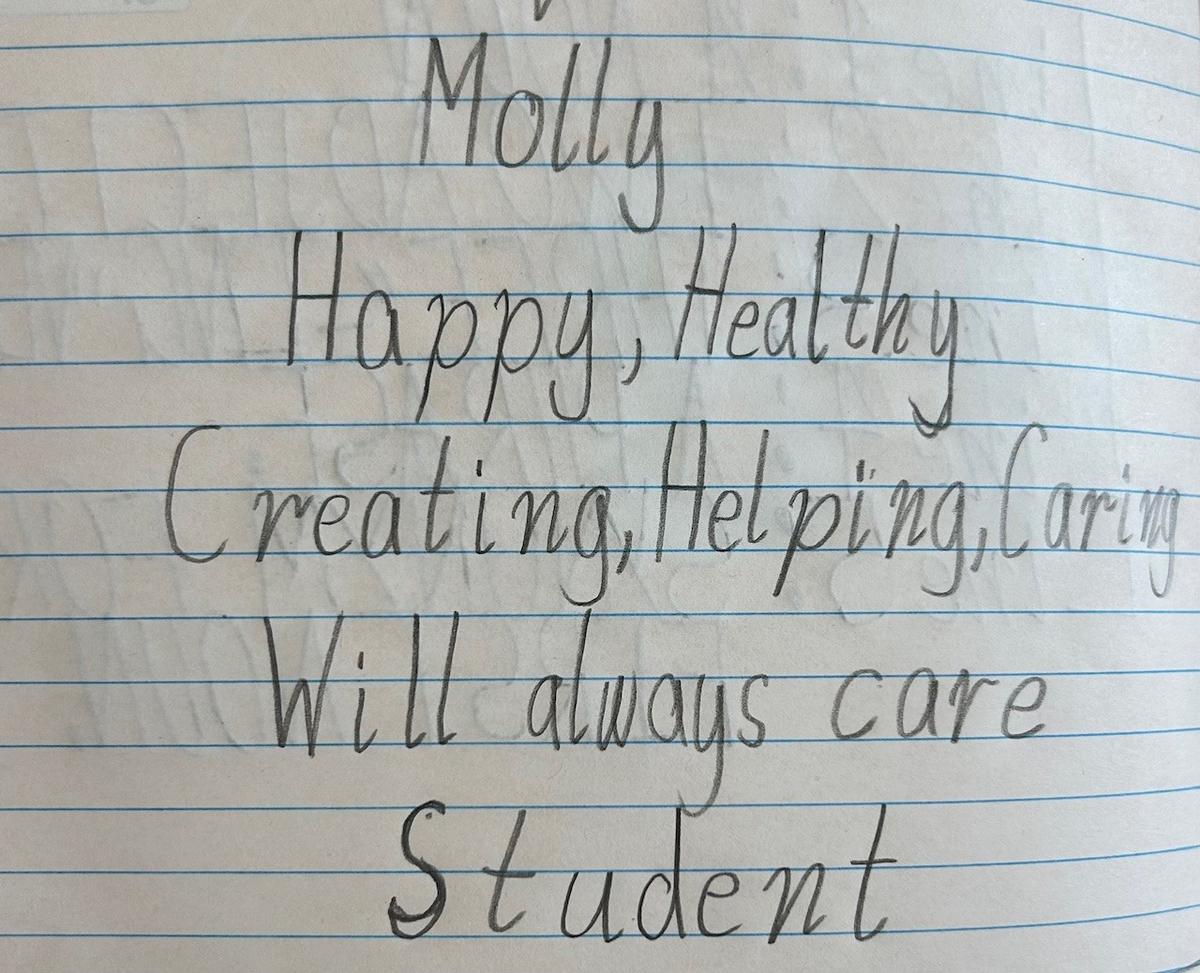 Molly
Happy, Healthy
Creating, Helping, Caring
Will always care
Student